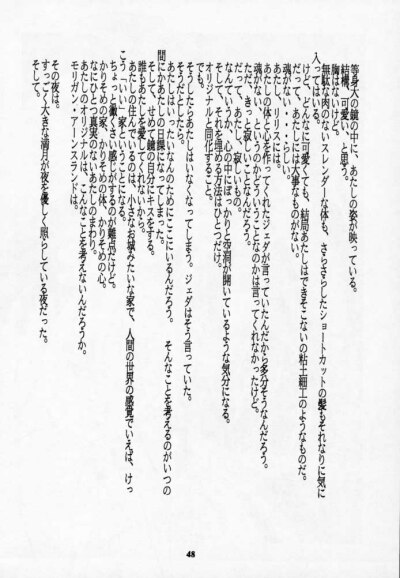 等身大の鏡の中に、あたしの姿が映っている。
結構、可愛い、と思う。
胸はないけど。
無駄な肉のないスレンダーな体も、さらさらしたショートカットの髪もそれなりに気に
入ってはいる。
けど、どんなに可愛くても、結局あたしはできそこないの粘土細工のようなものだ。
だって、あたしには大事なものがない。
魂がない・・・らしい。
あたし、リリスには。
あたしの体と心を作ってくれたジェダが言っていたんだから多分そうなんだろう。
魂がない、というのがどういうことなのかは言ってくれなかったけど。
ただ、きっと寂しいことなんだろう。
だって、あたし、寂しいもの。
なんていうか、心の中にぽっかりと空洞が開いているような気分になる。
そして、それを埋める方法はひとつだけ。
オリジナルと同化すること。
でも。
そうしたらあたしはいなくなってしまう。ジェダはそう言っていた。
そうだとしたら。
あたしはいったいなんのためにここにいるんだろう。　そんなことを考えるのがいつの
間にかあたしの日課になってしまった。
そして、せめて鏡の自分にキスをする。
誰もあたしを愛してくれないから。
あたしの住んでいるのは、小さなお城みたいな家で、人間の世界の感覚でいえば、けっ
こう「いい」家ということになる。
ちょっと黴っぽい感じがするのが難点だけど。
かりそめの家、かりそめの体、かりそめの心。
なにひとつ真実のないあたしのまわり。
あたしのオリジナルは、こんなことを考えないんだろうか。
モリガン・アーンスランドは。
その夜は。
すっごく大きな満月が夜を優しく照らしている夜だった。
そして。
48